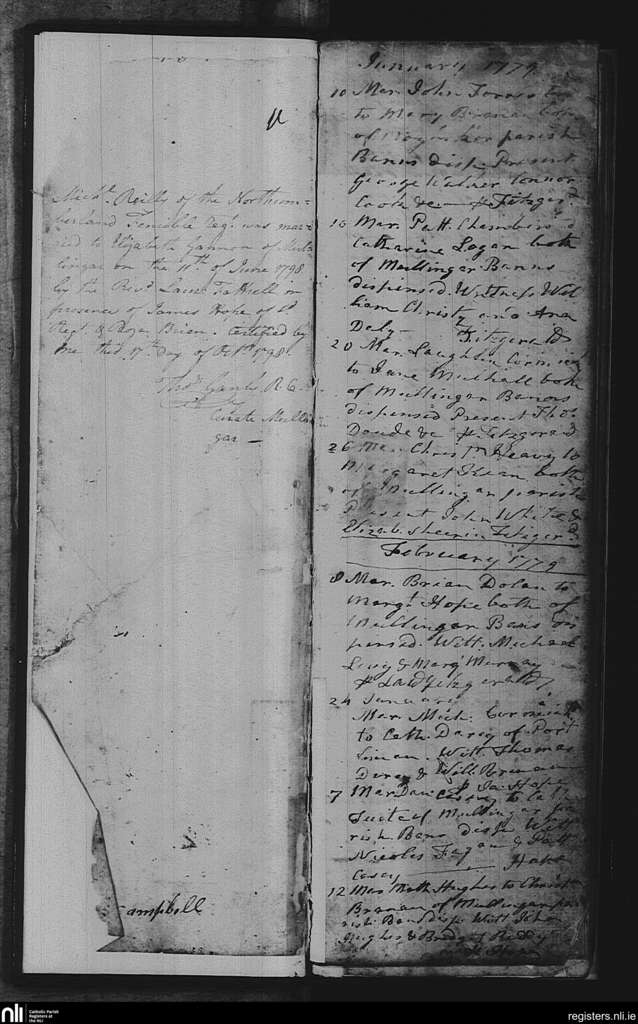 Mich.l Reilly of the Northum=
berland Fencible Reg.t was mar=
ried to Elizabeth Gannon of Mul=
lingar on the 11th of June 1798
by the Rev.d
presence of James Hope of s.d
Reg.t & Roger Brien. Certified by
me this 17th day of 1798
R. C.
Curate Mullin
gar —
Campbell
January 1779
10 Mar. John
to Mary Brenan both
of parish
Banns Disp. Present
George Connor
& Fitzger.d
10 Mar. Patt. Chambers
Catharine Logan both
of Mullingar Banns
dispensed. Wittness Wil
liam Christy and Ana
Daly — Fitzgerald
20 Mar. Laughlin
to Jane Mulhall both
of Mullingar Banns
dispensed Present Tho.s
&c Fitzgerald
26 Mar. Christ.r Heavy to
Margaret both
of Mullingar parish
Present John White &
Elizab. Fitzger.d
February 1779
8 Mar. Brian Dolan to
Marg.t Hope both of
Mullingar Bans dis
pensed. Witt. Michael
& Marg.t Murray
Fitzgerald
24 January
Mar. Mich.
to Cath. Darcy of Port
loman. Witt. Thomas
Darcy & Will. Brenan
Hope
7 Mar. Dan. Casey to
of Mulling.ar pa
rish Bans Disp. Witt
Nicolas Fagan & Patt
Casey — Hope
12 Mar. Math. Hughes to Christ
Branan of Mullingar pa
rish Ban Disp. Witt John
Hughes & Bridg.t Reddy
nli
Catholic Parish
Registers at
the NLI
registers.nli.ie